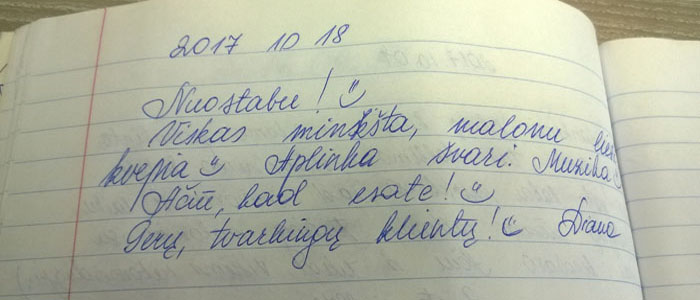 2017 10 18
Nuostabu! :)
Viskas minkšta, malonu
kvepia :) Aplinka švari. Muzika :)
Ačiū, kad esate! :)
Gerų, tvarkingų klientų! :) Diana